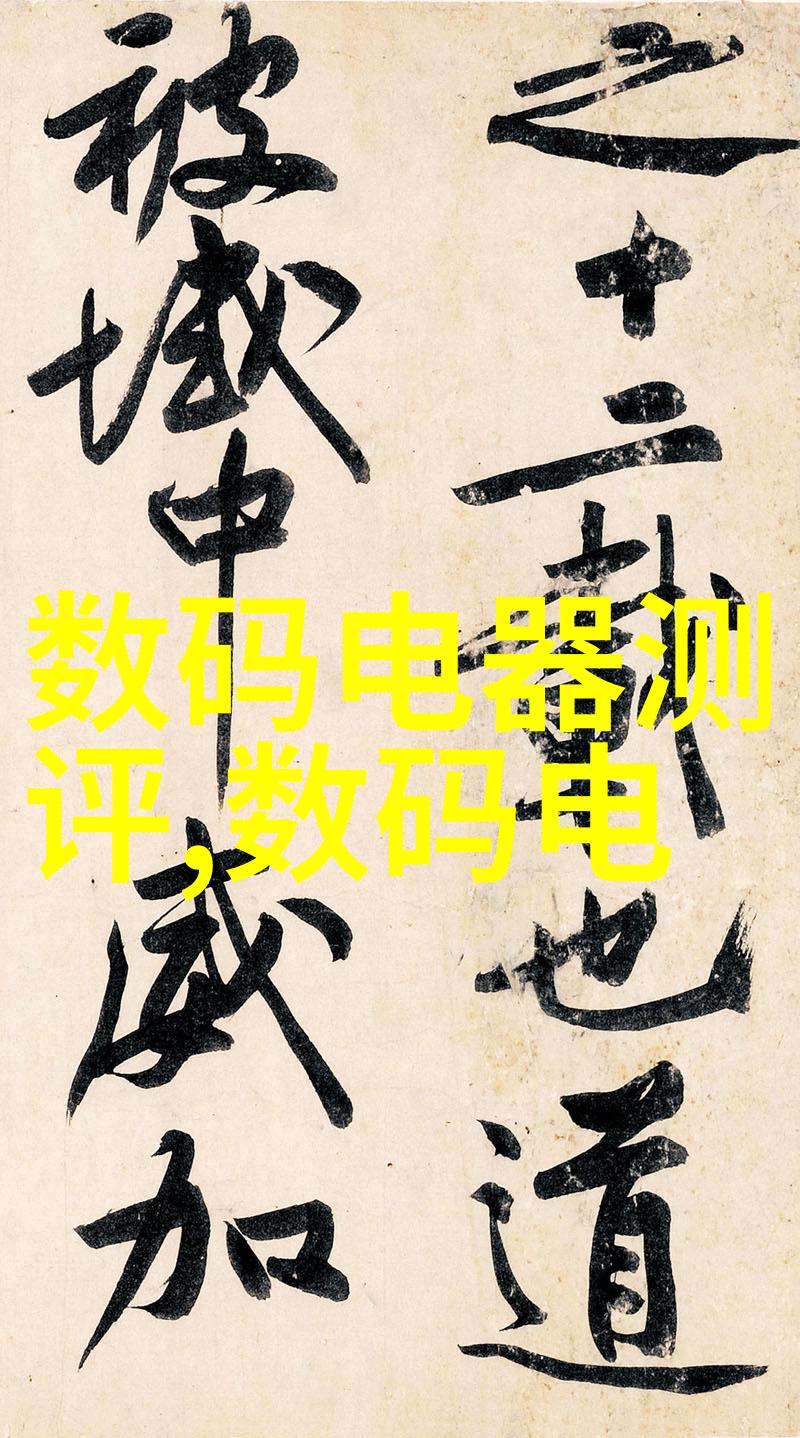 之十二载也道
被域中威加
数码电器测
评,数码电